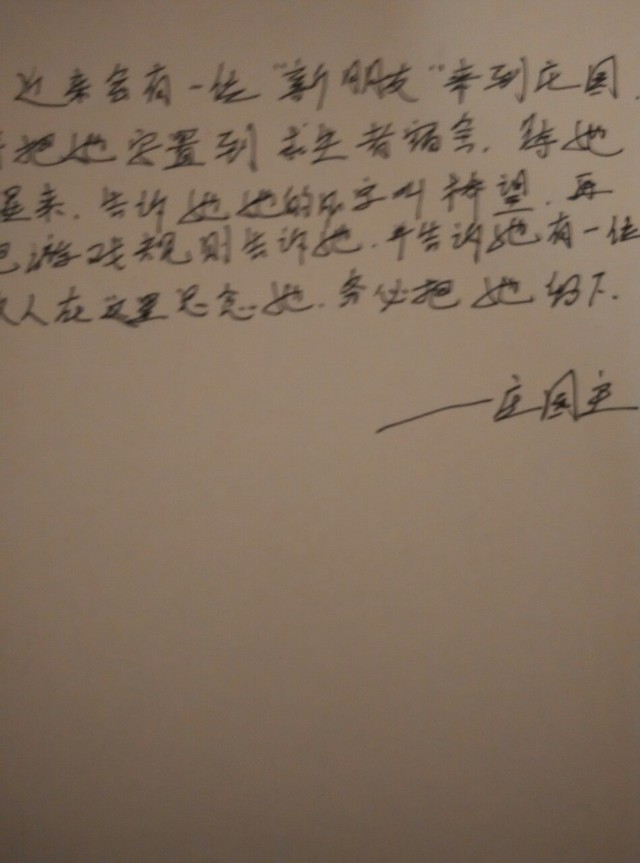 近来会有一位“新朋友”来到庄园.
把她安置到求生者宿舍.待她
醒来.告诉她她的名字叫希望.再
把游戏规则告诉她.并告诉她有一位
故人在这里思念她.务必把她留下.
——庄园主